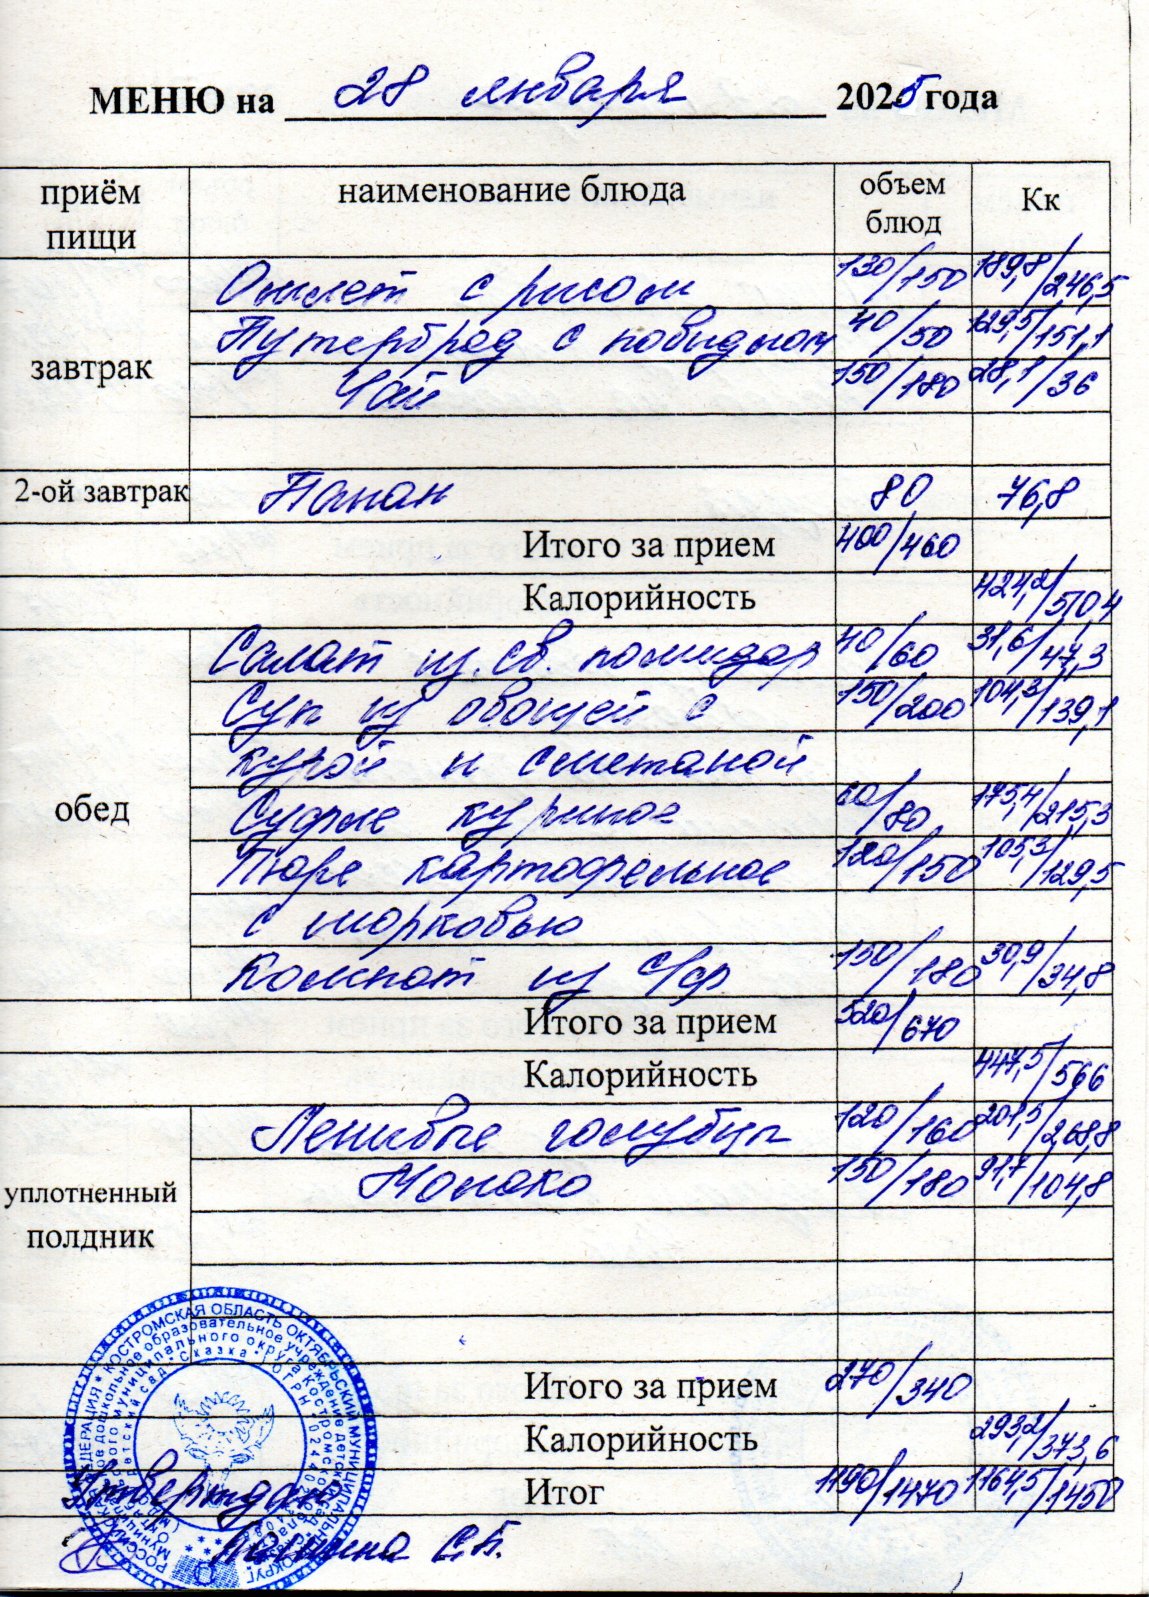 МЕНЮ на 28 января 2025 года
приём пищи наименование блюда объем блюд Кк
завтрак
Омлет с рисом 130/150 189,8/246,5
Бутерброд с повидлом 40/50 129,5/151,1
Чай 150/180 28,1/36
2-ой завтрак Банан 80 76,8
Итого за прием 400/460
Калорийность 424,2/510,4
обед
Салат из св. помидор 40/60 31,6/47,3
Суп из овощей с 150/200 104,3/139,1
курой и сметаной
Суфле куриное 60/80 175,4/215,3
Пюре картофельное 120/150 105,3/129,5
с морковью
Компот из с/ф 150/180 30,9/34,8
Итого за прием 520/670
Калорийность 447,5/566
уплотненный полдник
Ленивые голубцы 120/160 201,5/268,8
Молоко 150/180 91,7/104,8
Итого за прием 270/340
Калорийность 293,2/373,6
Итог 1190/1470 1164,5/1450
Утверждаю
С.Б.
КОСТРОМСКАЯ ОБЛАСТЬ ОКТЯБРЬСКИЙ МУНИЦИПАЛЬНЫЙ ОКРУГ
дошкольное образовательное учреждение детский сад
муниципального округа Костромской
детский сад "Сказка"